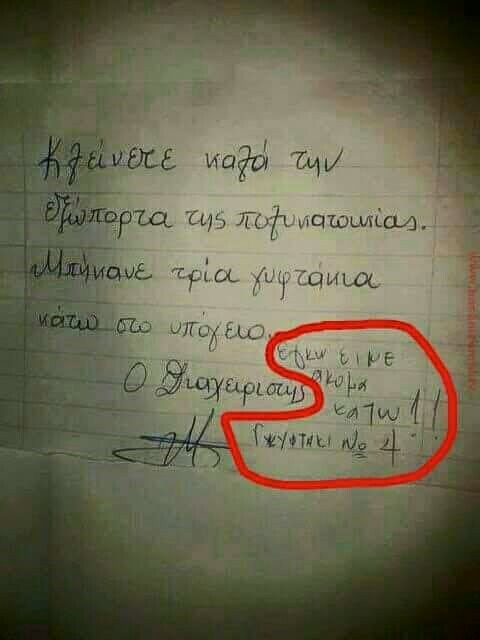 Κλείνετε καλά την
εξώπορτα της πολυκατοικίας.
Μπήκανε τρία γυφτάκια
κάτω στο υπόγειο.
Ο Διαχειριστής
εγκω ΕΙΝΕ
ακομα
κατω !!
Γκυφτακι Νο 4